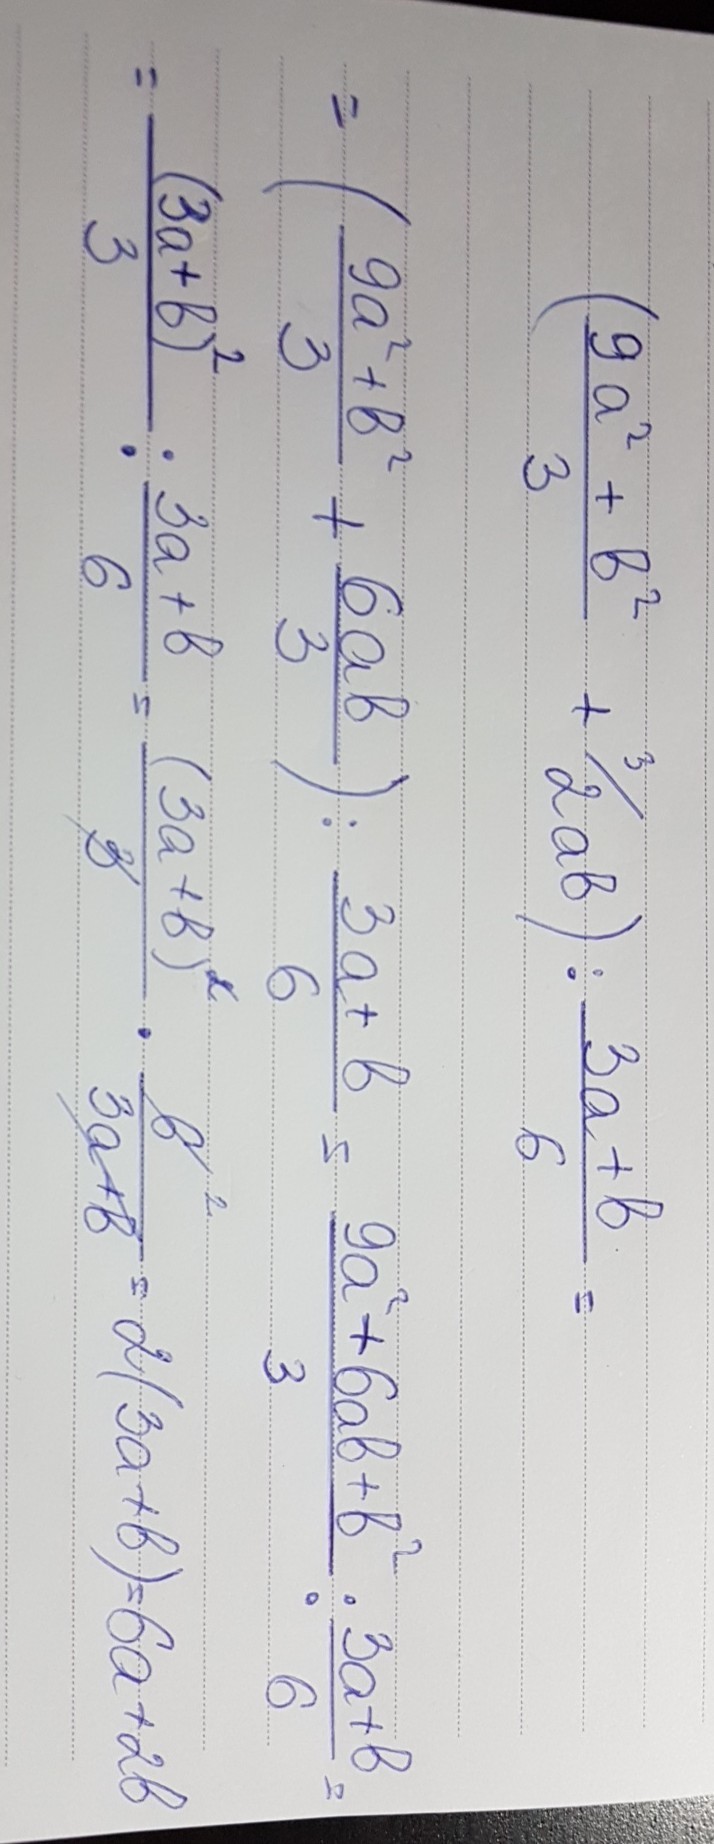 (9a²+b²/3 + ³/2ab) : 3a+b/6 =
= (9a²+b²/3 + 6ab/3) : 3a+b/6 = 9a²+6ab+b²/3 : 3a+b/6 =
= (3a+b)²/3 : 3a+b/6 = (3a+b)²/3 · 6²/3a+b = 2(3a+b)=6a+2b